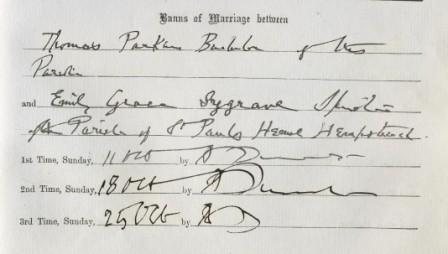 Banns of Marriage between
Thomas Parkins Bachelor of this
Parish
and Emily Grace Sygrave Spinster
of the Parish of St Pauls Hemel Hempstead
1st Time, Sunday, 11 Oct by
2nd Time, Sunday, 18 Oct by
3rd Time, Sunday, 25 Oct by